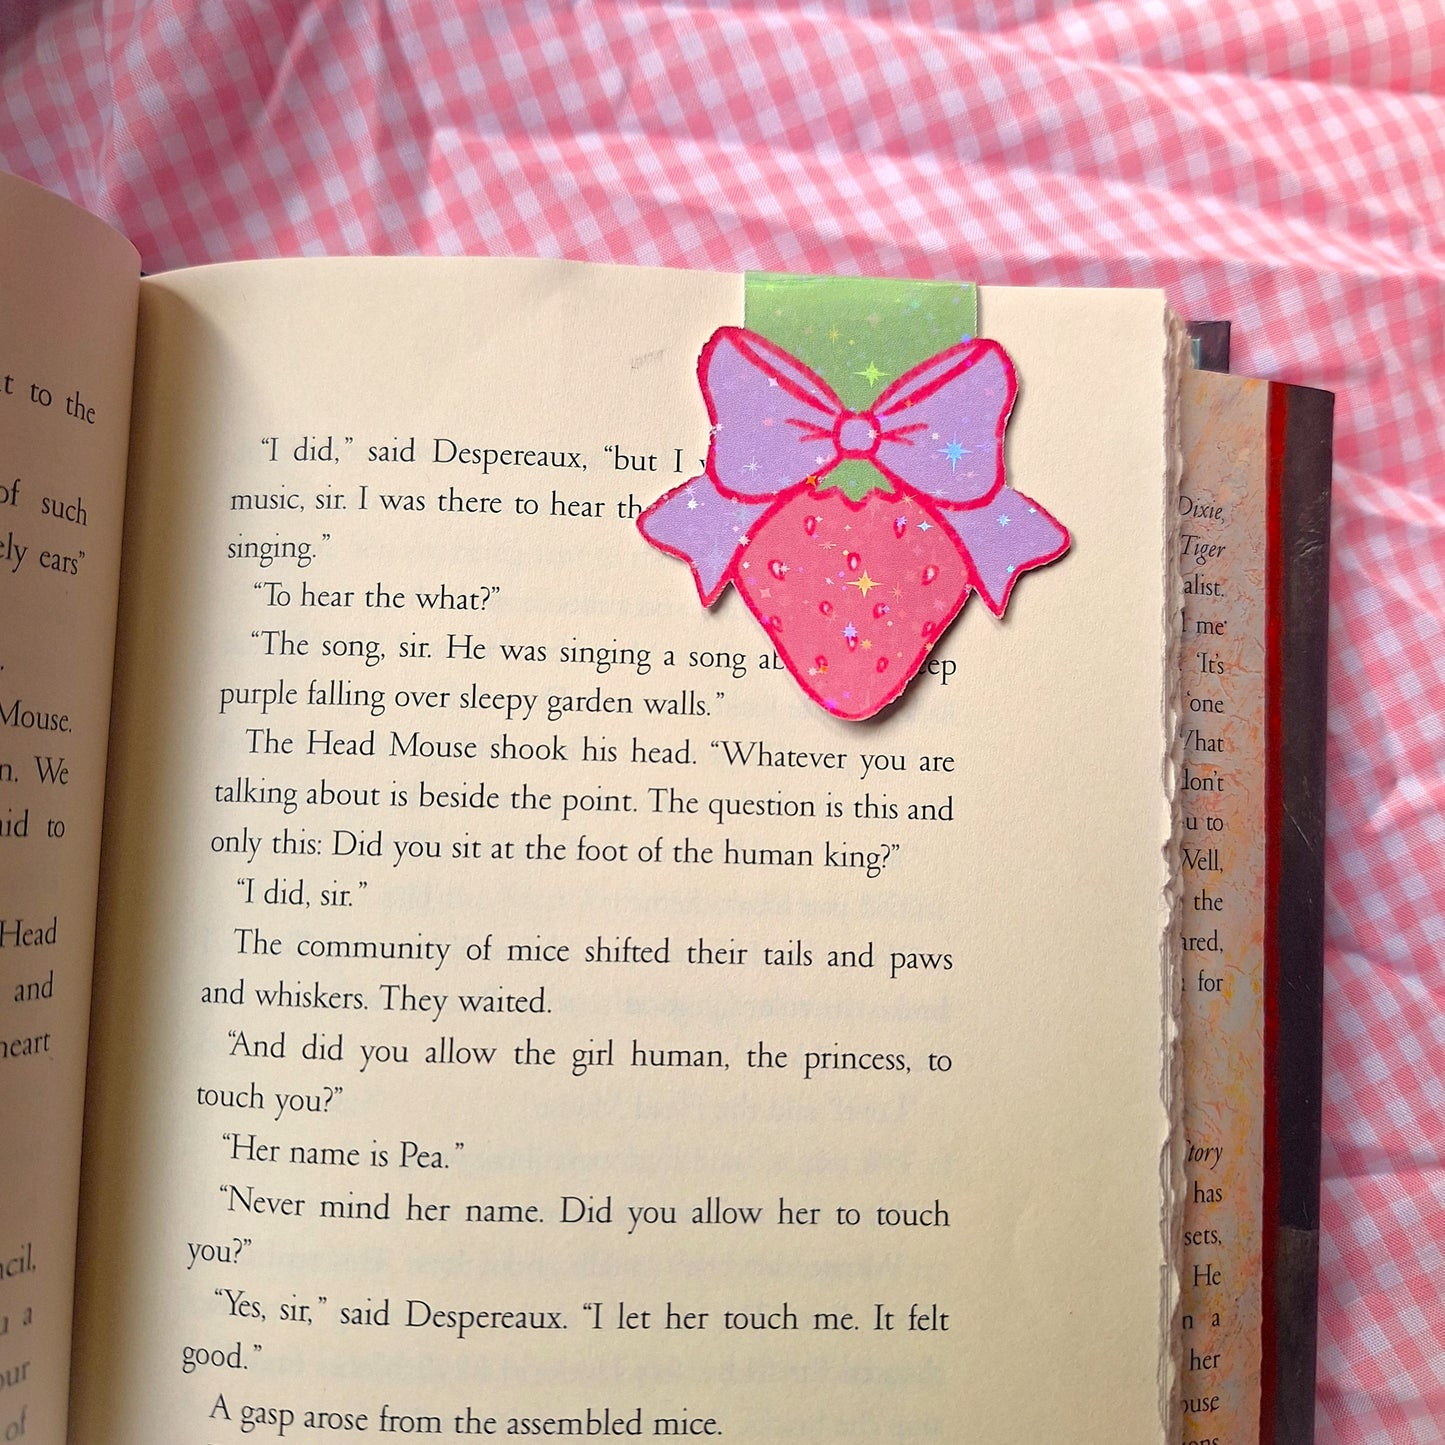 t to the
of such
ely ears"
Mouse.
n. We
aid to
Head
and
heart
ncil,
u a
our
of
“I did,” said Despereaux, “but I
music, sir. I was there to hear th
singing.”
“To hear the what?”
“The song, sir. He was singing a song ab eep
purple falling over sleepy garden walls.”
The Head Mouse shook his head. “Whatever you are
talking about is beside the point. The question is this and
only this: Did you sit at the foot of the human king?”
“I did, sir.”
The community of mice shifted their tails and paws
and whiskers. They waited.
“And did you allow the girl human, the princess, to
touch you?”
“Her name is Pea.”
“Never mind her name. Did you allow her to touch
you?”
“Yes, sir,” said Despereaux. “I let her touch me. It felt
good.”
A gasp arose from the assembled mice.
Dixie,
Tiger
alist.
me
‘It’s
‘one
What
don’t
u to
Well,
the
ared,
for
Story
has
sets,
He
n a
her
ouse
ions